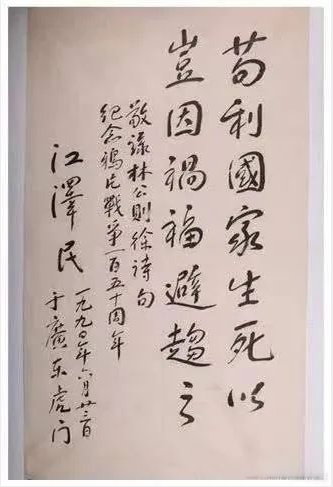 苟利國家生死以
豈因禍福避趨之
敬錄林公則徐詩句
紀念鴉片戰爭一百五十周年
江澤民
一九九〇年六月廿二日
于廣东虎门